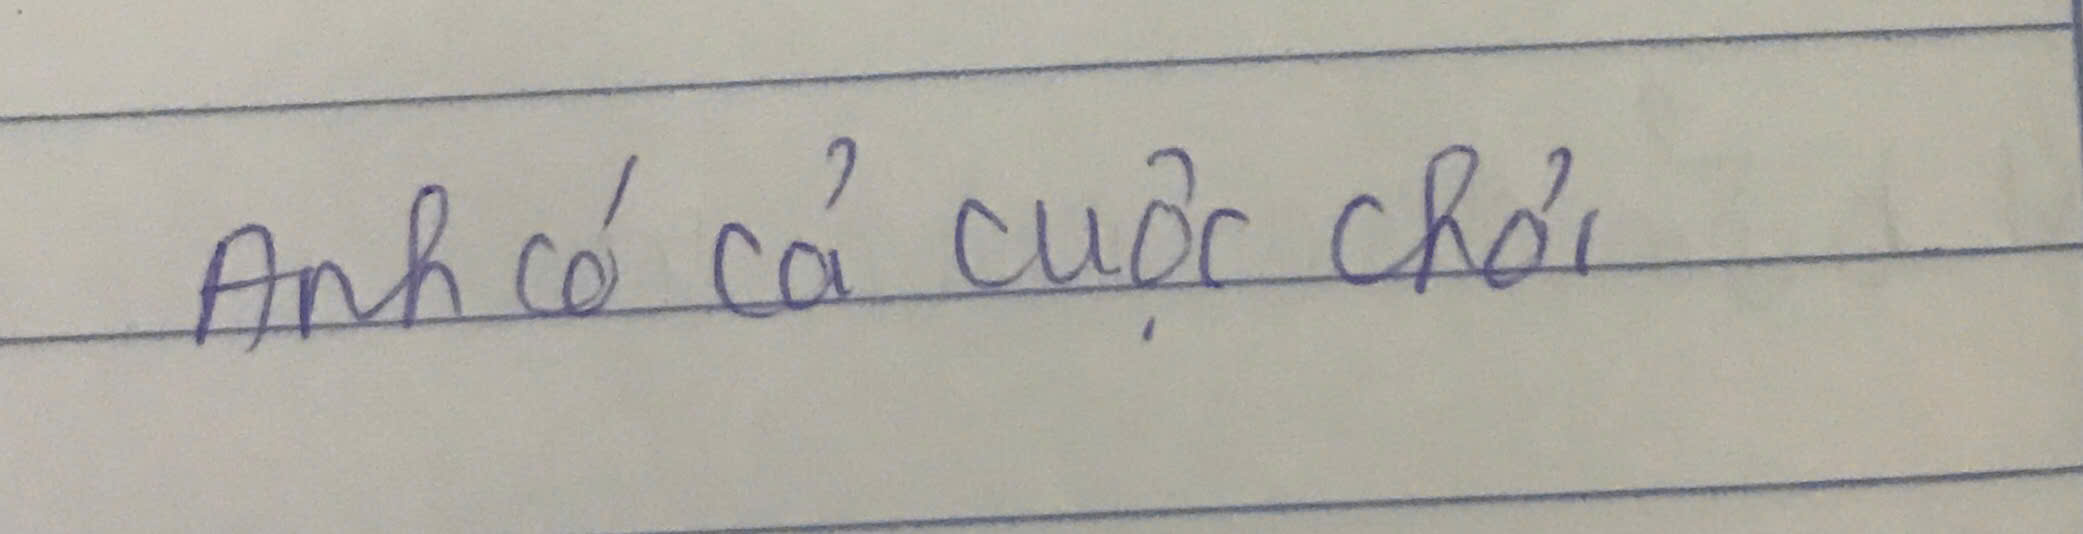 Anh có cả cuộc chơi